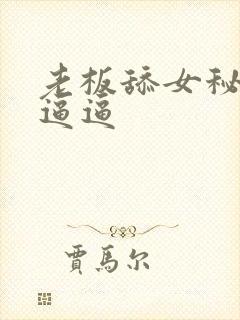 老板舔女秘
逼逼
贾馬尔